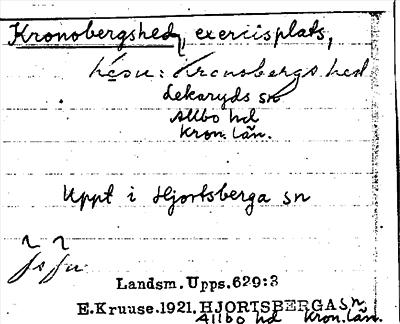 Kronobergshed, exercisplats,
Kronobergs hed
Lekaryds sn
Allbo hd
Kron. län.
Uppt i Hjortsberga sn
Landsm. Upps. 629:3
E. Kruuse. 1921. HJORTSBERGA sn
Allbo hd Kron. län.